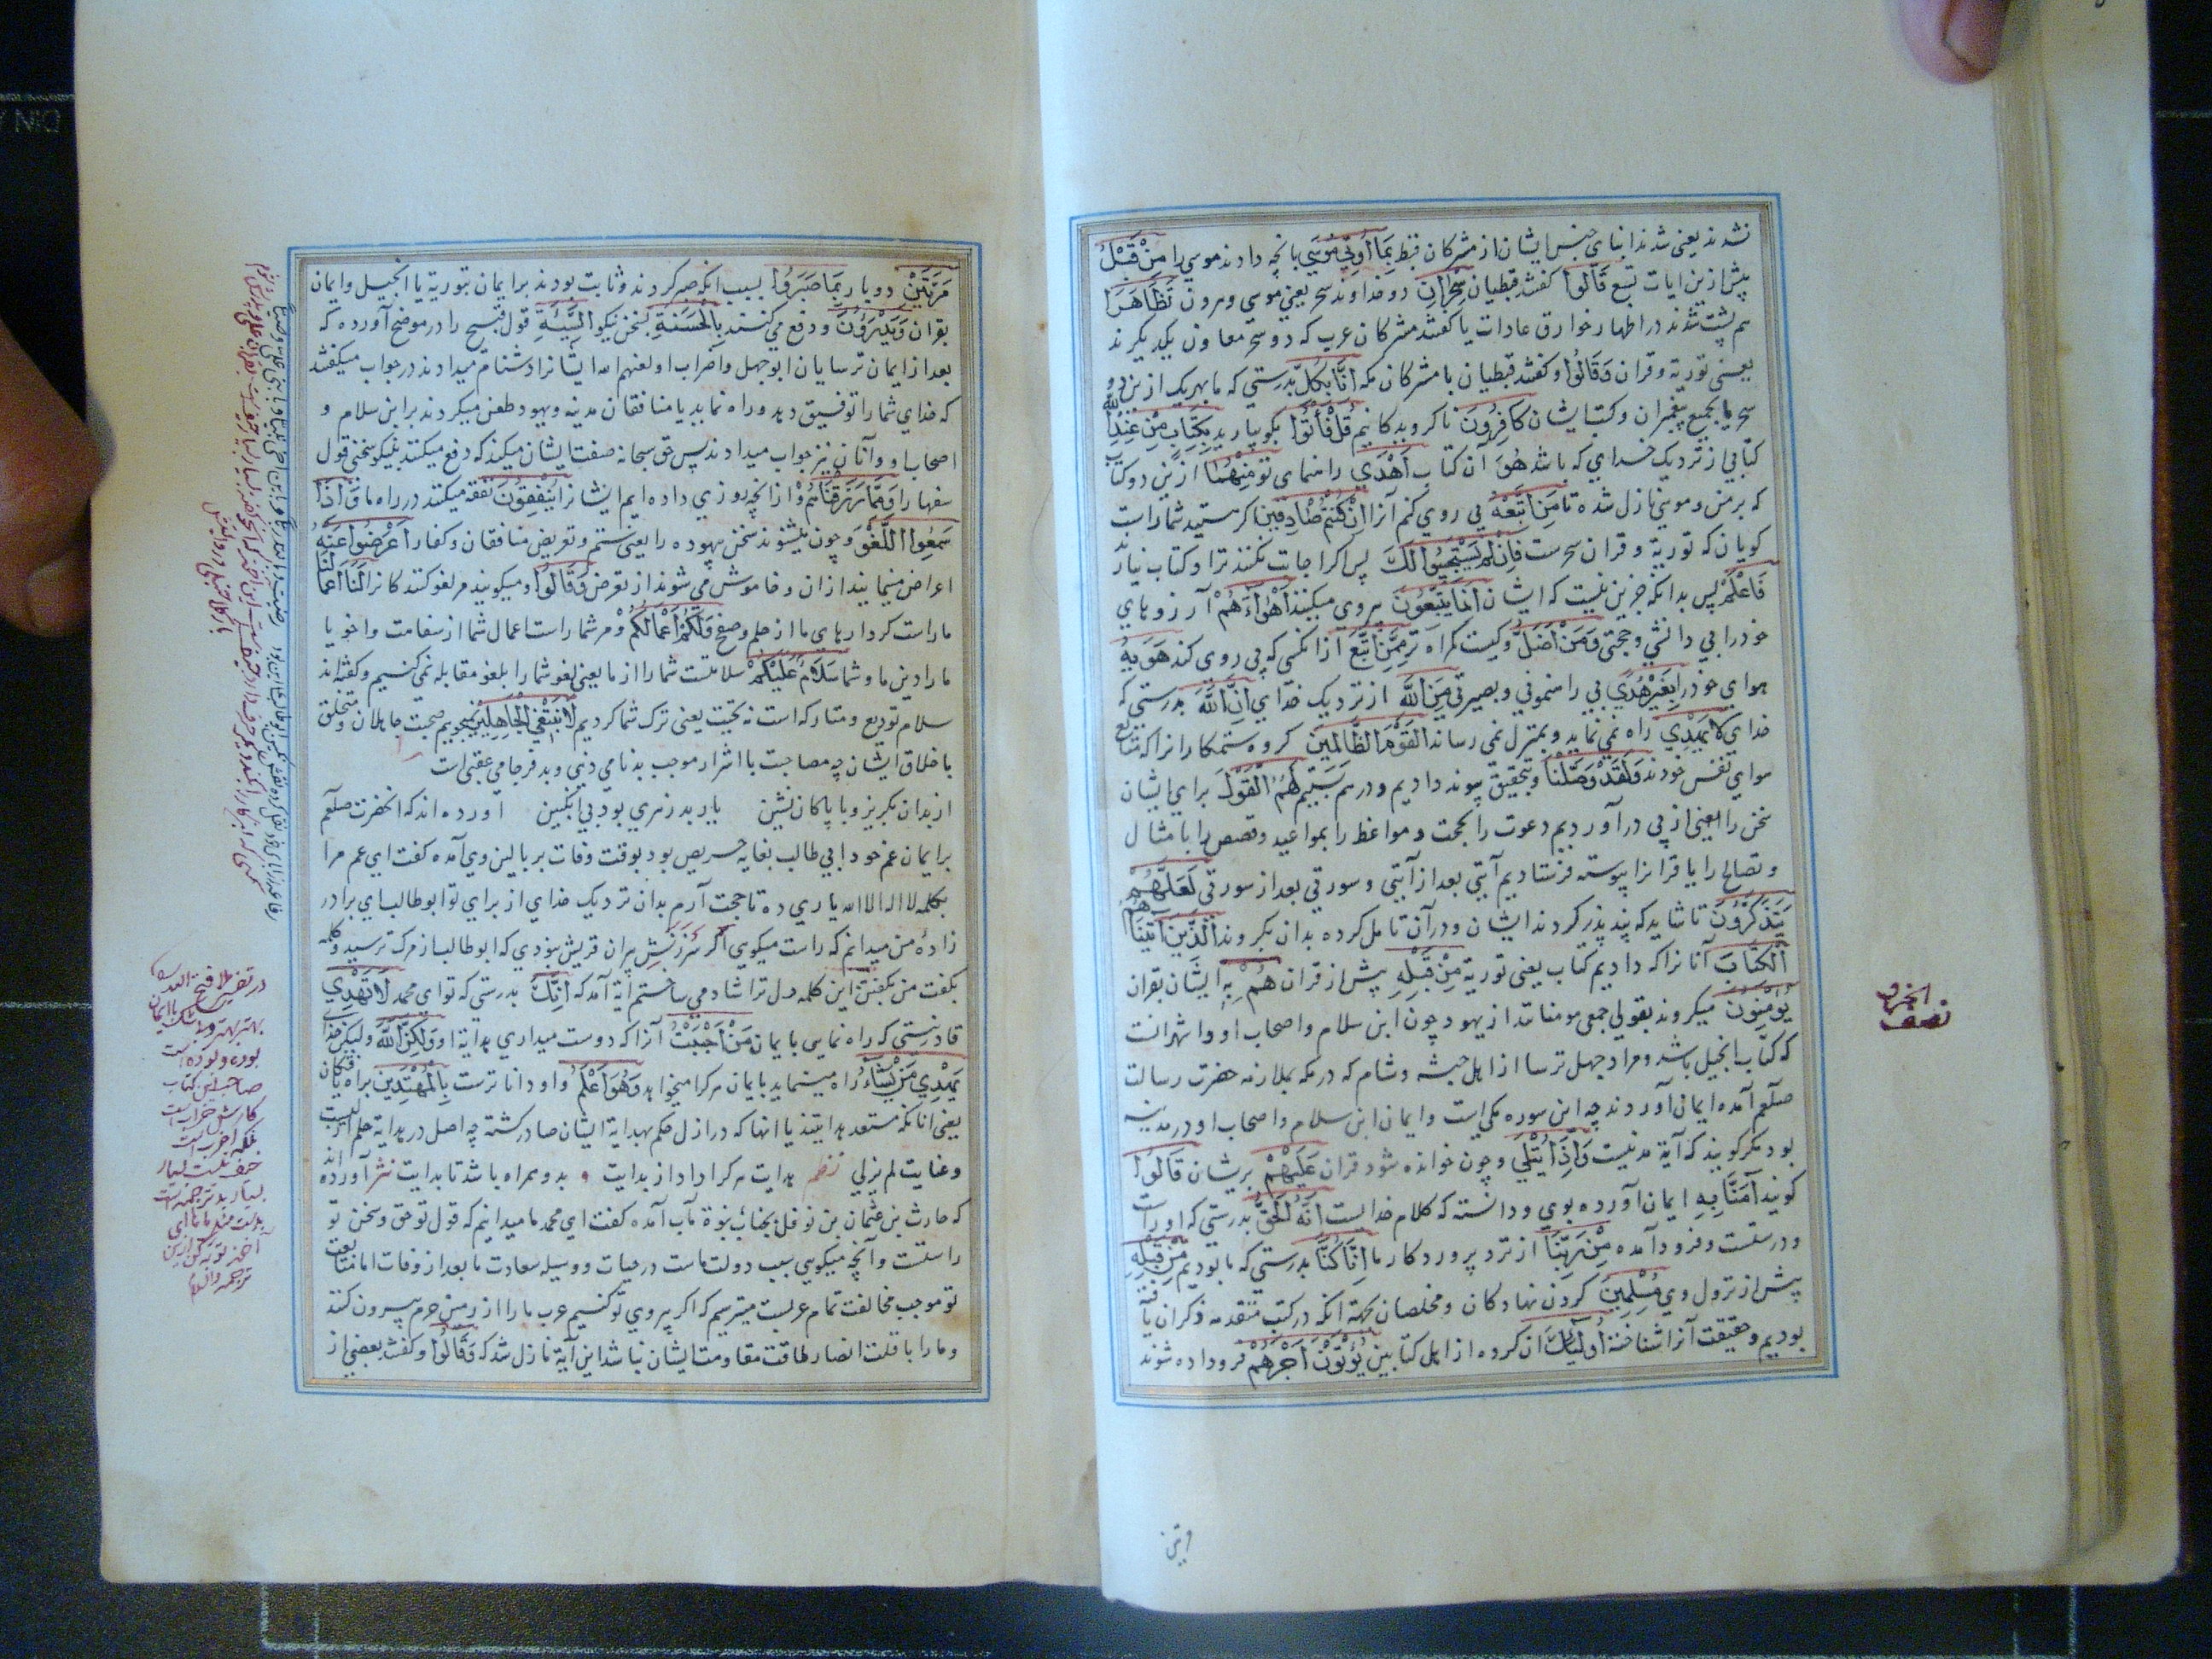 نشدند یعنی شدند ابنای جنس ایشان از مشرکان قبط بِمَا أُوتِيَ مُوسَي بانچه دادند موسی را مِنْ قَبْلُ
پیش ازین ایات تسع قَالُوا کفتند قبطیان سِحْرَانِ دو خداوند سحر یعنی موسی و هرون تَظَاهَرَا
هم پشت شدند در اظهار خوارق عادات یا کفتند مشرکان عرب که دو سحر معاون یکدیکرند
یعنی توریة و قران وَقَالُوا و کفتند قبطیان یا مشرکان مکه اِنَّا بِكُلٍّ بدرستی که ما بهر یک ازین دو
سحر یا بجمیع پیغمبران و کتب ایشان كَافِرُونَ ناکرویدکانیم قُلْ فَأْتُوا بکو بیارید بِكِتَابٍ مِنْ عِنْدِ اللّٰهِ
کتابی از نزدیک خدای که باشد هُوَ آن کتاب أَهْدَي راه نمای تر مِنْهُمَا ازین دو کتاب
که بر من و موسی نازل شده تا من أَتَّبِعْهُ پی روی کنم آنرا اِنْ كُنْتُمْ صَادِقِينَ اکر هستید شما راست
کویان که توریة و قران سحرست فَاِنْ لَمْ يَسْتَجِيبُوا لَكَ پس اکر اجابت نکنند ترا و کتاب نیارند
فَاعْلَمْ پس بدانکه جزین نیست که ایشان أَنَّمَا يَتَّبِعُونَ پیروی میکنند أَهْوَاءَهُمْ آرزوهای
خود را بی دانشی و حجتی وَمَنْ أَضَلُّ و کیست کمراه تر مِمَّنِ اتَّبَعَ از انکسی که پی روی کند هَوَيهُ
هوای خود را بِغَيْرِ هُدًي بی راه نمونی و بصیرتی مِنَ اللّٰهِ از نزدیک خدای اِنَّ اللّٰهَ بدرستی که
خدای لَا يَهْدِي راه نمی نماید و بمنزل نمی رساند الْقَوْمَ الظَّالِمِينَ کروه ستمکارانرا که متابع
هوای نفس خودند وَلَقَدْ وَصَّلْنَا و بتحقیق پیوند دادیم و درهم بستیم لَهُمُ الْقَوْلَ برای ایشان
سخن را یعنی از پی در آوردیم دعوت را بحجت و مواعظ را بمواعید و قصص را بامثال
و نصایح را یا قرانرا پیوسته فرستادیم آیتی بعد از آیتی و سورتی بعد از سورتی لَعَلَّهُمْ
يَتَذَكَّرُونَ تا شاید که پند پذیر کردند ایشان و در آن تامل کرده بدان بکروند الَّذِينَ آتَيْنَاهُمُ
الْكِتَابَ آنانرا که دادیم کتاب یعنی توریة مِنْ قَبْلِهِ پیش از قران هُمْ بِهِ ایشان بقران
يُؤْمِنُونَ میکروند بقولی جمعی مومنانند از یهود چون ابن سلام و اصحاب او و اشهر انست
که کتاب انجیل باشد و مراد چهل ترسا از اهل حبشه و شام که در مکه بملازمه حضرت رسالت
صلعم آمده ایمان آوردند چه این سوره مکی است و ایمان ابن سلام و اصحاب او در مدینه
بود مکر کویند که آیة مدنیست وَاِذَا يُتْلَي و چون خوانده شود قران عَلَيْهِمْ بریشان قَالُوا
کویند آمَنَّا بِهِ ایمان آورده بوی و دانسته که کلام خدایست اِنَّهُ الْحَقُّ بدرستی که او راست
و درستست و فرود آمده مِنْ رَبِّنَا از نزد پروردکار ما اِنَّا كُنَّا بدرستی که ما بودیم مِنْ قَبْلِهِ
پیش از نزول وی مُسْلِمِينَ کردن نهادکان و مخلصان بجهة انکه در کتب متقدمه ذکر ان یافته
بودیم و حقیقت آنرا شناخته أُولٰئِكَ ان کروه از اهل کتابین يُؤْتَوْنَ أَجْرَهُمْ مزد داده شوند
نصف
مَرَّتَيْنِ دوبار بِمَا صَبَرُوا بسبب انکه صبر کردند و ثابت بودند بر ایمان بتوریة یا انجیل و ایمان
بقران وَيَدْرَؤُنَ و دفع می کنند بِالْحَسَنَةِ بسخن نیکو السَّيِّئَةَ قول قبیح را در موضح آورده که
بعد از ایمان ترسایان ابو جهل و اضراب او لعنهم الله ایشانرا دشنام میدادند در جواب میکفتند
که خدای شما را توفیق دهد و راه نماید یا منافقان مدینه و یهود طعن میکردند بر ابن سلام و
اصحاب او و آنان نیز جواب میدادند پس حق سبحانه صفت ایشان میکند که دفع میکنند بنیکو سخنی قول
سفها را وَمِمَّا رَزَقْنَاهُمْ و از انچه روزی داده ایم ایشانرا يُنْفِقُونَ نفقه میکنند در راه ما وَاِذَا
سَمِعُوا اللَّغْوَ و چون بشنوند سخن بیهوده را یعنی شتم و تعریض منافقان و کفار أَعْرَضُوا عَنْهُ
اعراض مینمایند از ان و خاموش می شوند از تعرض وَقَالُوا و میکویند مر لغو کنندکانرا لَنَا أَعْمَالُنَا
ما راست کردارهای ما از حلم و صفح وَلَكُمْ أَعْمَالُكُمْ و مر شما راست اعمال شما از سفاهت و اخو یا
ما را دین ما و شما سَلَامٌ عَلَيْكُمْ سلامتست شما را از ما یعنی لغو شما را بلغو مقابله نمی کنیم و کفته اند
سلام تودیع و متارکه است نه تحیت یعنی ترک شما کردیم لَا نَبْتَغِي الْجَاهِلِينَ نمیجوییم صحبت جاهلان و متخلق
با خلاق ایشان چه مصاحبت با اشرار موجب بدنامی دنیی و بد فرجامی عقبی است
از بدان بکریز و با پاکان نشین یار بد زهری بود بی انکبین آورده اند که انحضرت صلعم
بر ایمان عم خود ابی طالب بغایه حریص بود بوقت وفات بر بالین وی آمده کفت ای عم مرا
بکلمه لا اله الا الله یاری ده تا حجت آرم بدان نزدیک خدای از برای تو ابو طالب ای برادر
زادهٔ من میدانم که راست میکویی اکر سرزنش پیران قریش نبودی که ابو طالب از مرک ترسید و کلمه
بکفت من بکفتن این کلمه دل ترا شاد می ساختم ایة آمد که اِنَّكَ بدرستی که تو ای محمد لَا تَهْدِي
قادر نیستی که راه نمایی بایمان مَنْ أَحْبَبْتَ آنرا که دوست میداری هدایة او وَلٰكِنَّ اللّٰهَ ولیکن خدای
يَهْدِي مَنْ يَشَاءُ راه مینماید بایمان هر کرا میخواهد وَهُوَ أَعْلَمُ و او داناترست بِالْمُهْتَدِينَ براه یافتکان
یعنی انانکه مستعد هدایتند یا انها که در ازل حکم بهدایة ایشان صادر کشته چه اصل در هدایة حکم ازلیست
و عنایت لم یزلی نظم هدایت هر کرا داد از بدایت بدو همراه باشد تا بدایت نثر آورده اند
که حارث بن عثمان بن نوفل بجناب نبوة مآب آمده کفت ای محمد ما میدانیم که قول تو حق و سخن تو
راستست و آنچه میکویی سبب دولت ماست در حیات و وسیله سعادت ما بعد از وفات اما متابعت
تو موجب مخالفت تمام عربست میترسیم که اکر پیروی تو کنیم عرب ما را از زمین حرم بیرون کنند
و ما را با قلت انصار طاقت مقاومت ایشان نباشد این آیة نازل شد که وَقَالُوا و کفتند بعضی از